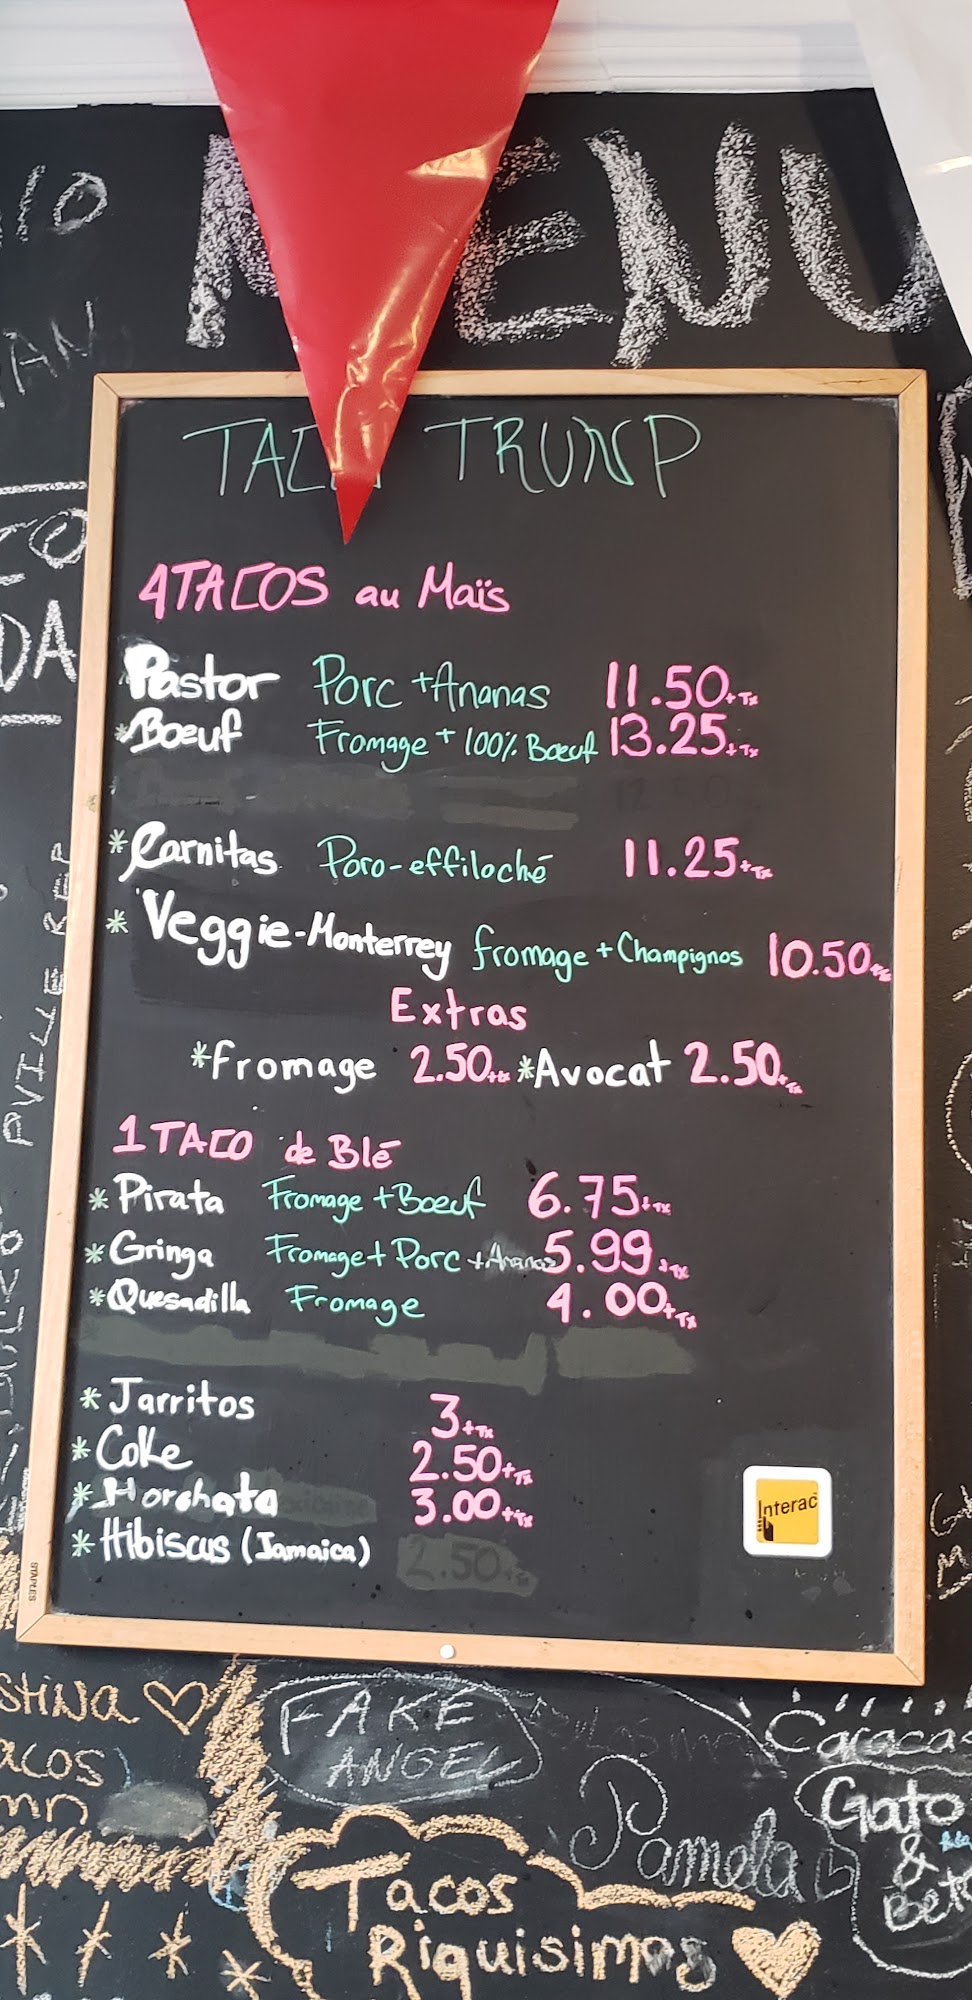 MENU
TACO TRUNP
4 TACOS au Maïs
Pastor Porc + Ananas 11.50 + Tx
* Boeuf Fromage + 100% Boeuf 13.25 + Tx
* Carnitas Poro-effiloché 11.25 + Tx
* Veggie-Monterrey fromage + Champignos 10.50 + Tx
Extras
* Fromage 2.50 + tx * Avocat 2.50 + Tx
1 TACO de Blé
* Pirata Fromage + Boeuf 6.75 + Tx
* Gringa Fromage + Porc + Ananas 5.99 + Tx
* Quesadilla Fromage 4.00 + Tx
* Jarritos 3 + Tx
* Coke 2.50 + Tx
* Horchata 3.00 + Tx
* Hibiscus (Jamaica) 2.50
Interac
STAPLES
FAKE
ANGEL
Caracas
Pamela
Gato
&
Tacos
Riquisimos